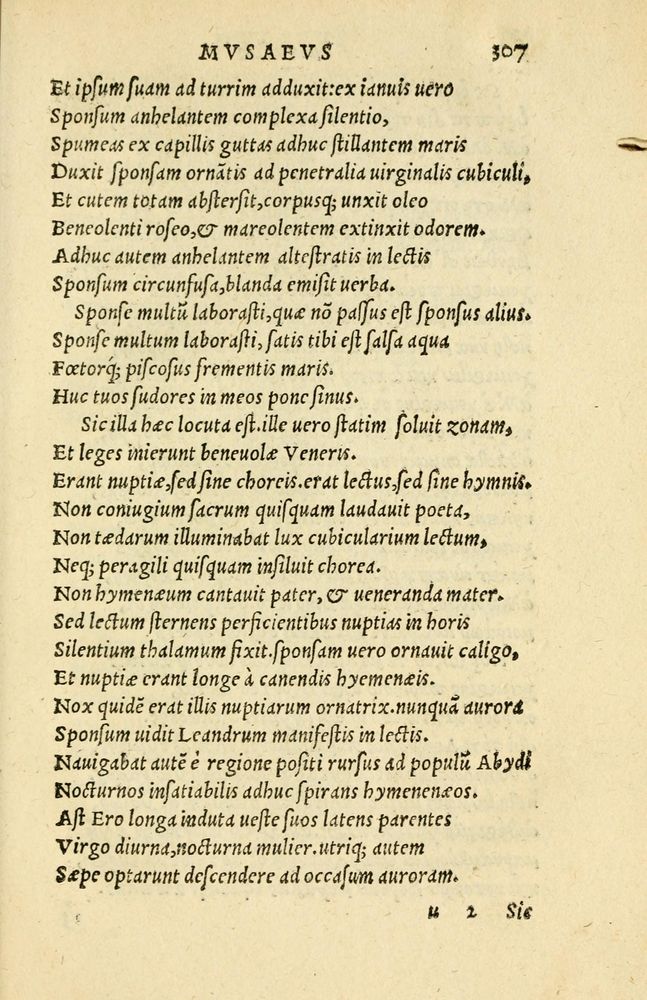 MVSAEVS 307
Et ipſum ſuam ad turrim adduxit:ex ianuis uero
Sponſum anhelantem complexa ſilentio,
Spumeas ex capillis guttas adhuc ſtillantem maris
Duxit ſponſam ornātis ad penetralia uirginalis cubiculi,
Et cutem totam abſterſit,corpusq; unxit oleo
Beneolenti roſeo,& mareolentem extinxit odorem.
Adhuc autem anhelantem alteſtratis in lectis
Sponſum circunfuſa,blanda emiſit uerba.
Sponſe multũ laboraſti,quæ nō paſſus eſt ſponſus alius.
Sponſe multum laboraſti, ſatis tibi eſt ſalſa aqua
Fœtorq́; piſcoſus frementis maris.
Huc tuos ſudores in meos pone ſinus.
Sic illa hæc locuta eſt.ille uero ſtatim ſoluit zonam,
Et leges inierunt beneuolæ Veneris.
Erant nuptiæ,ſed ſine choreis.erat lectus,ſed ſine hymnis.
Non coniugium ſacrum quiſquam laudauit poeta,
Non tædarum illuminabat lux cubicularium lectum,
Neq; peragili quiſquam inſiluit chorea.
Non hymenæum cantauit pater, & ueneranda mater.
Sed lectum ſternens perficientibus nuptias in horis
Silentium thalamum fixit.ſponſam uero ornauit caligo,
Et nuptiæ erant longe à canendis hyemenæis.
Nox quidē erat illis nuptiarum ornatrix.nunquā aurora
Sponſum uidit Leandrum manifeſtis in lectis.
Nauigabat autē è regione poſiti rurſus ad populũ Abydi
Nocturnos inſatiabilis adhuc ſpirans hymenenæos.
Aſt Ero longa induta ueſte ſuos latens parentes
Virgo diurna,nocturna mulier.utriq; autem
Sæpe optarunt deſcendere ad occaſum auroram.
u 2 Sic